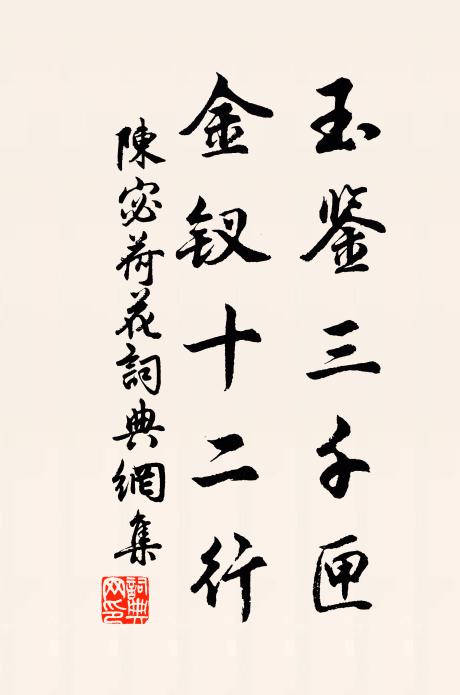 玉鉴三千匣
金钗十二行
陳宓荷花詞典網集
詞典网印